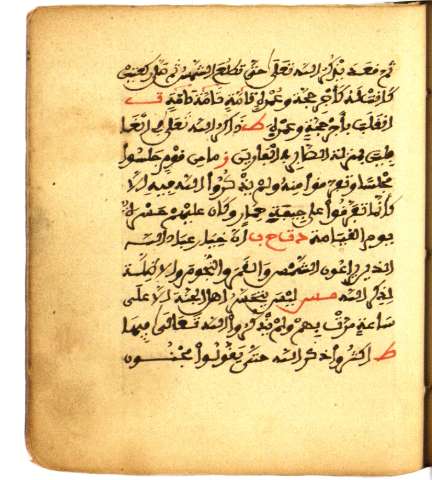 ثم قعد يذكر الله تعلى حتى تطلع الشمس ثم صلى ركعتين
كانت له كأجر حجة وعمرة تامة تامة تامة ت
انقلب بأجر حجة وعمرة ط ذاكر الله تعلى في الغا
فلين بمنزلة الصابر في الفارين ر ما من قوم جلسوا
مجلسا وتفرقوا منه ولم يذكروا الله فيه الا
كأنما تفرقوا على جيفة حمار وكان عليهم حسرة
يوم القيامة د ان خيار عباد الله
الذين يراعون الشمس والقمر والنجوم والاظلة
لذكر الله مس ليس يتحسر اهل الجنة الا على
ساعة مرت بهم ولم يذكروا الله تعالى فيها
ط اكثروا ذكر الله حتى يقولوا مجنون